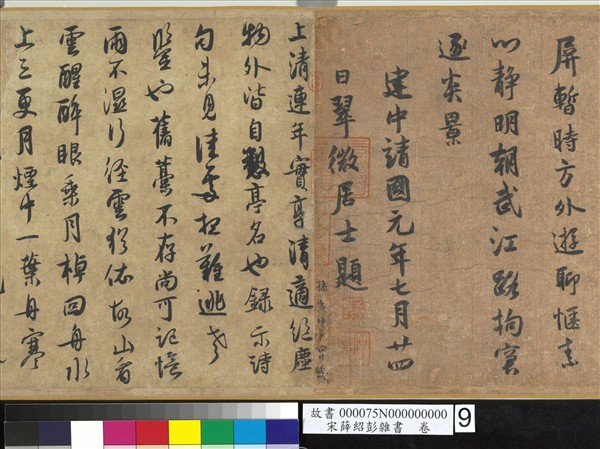 屏暫時方外遊聊愜素
心靜明朝武江路拘窘
逐炎景
建中靖國元年七月廿四
日翠微居士題
上清連年實享清適絕塵
物外皆自
亭名也錄示詩
句未見佳處
難逃
鑒也舊藁不存尚可記憶
雨不濕行徑雲
依故山看
雲醒醉眼乘月棹回舟水
上三更月煙中一葉舟寒
故書 000075N000000000
宋薛紹彭雜書 卷
9